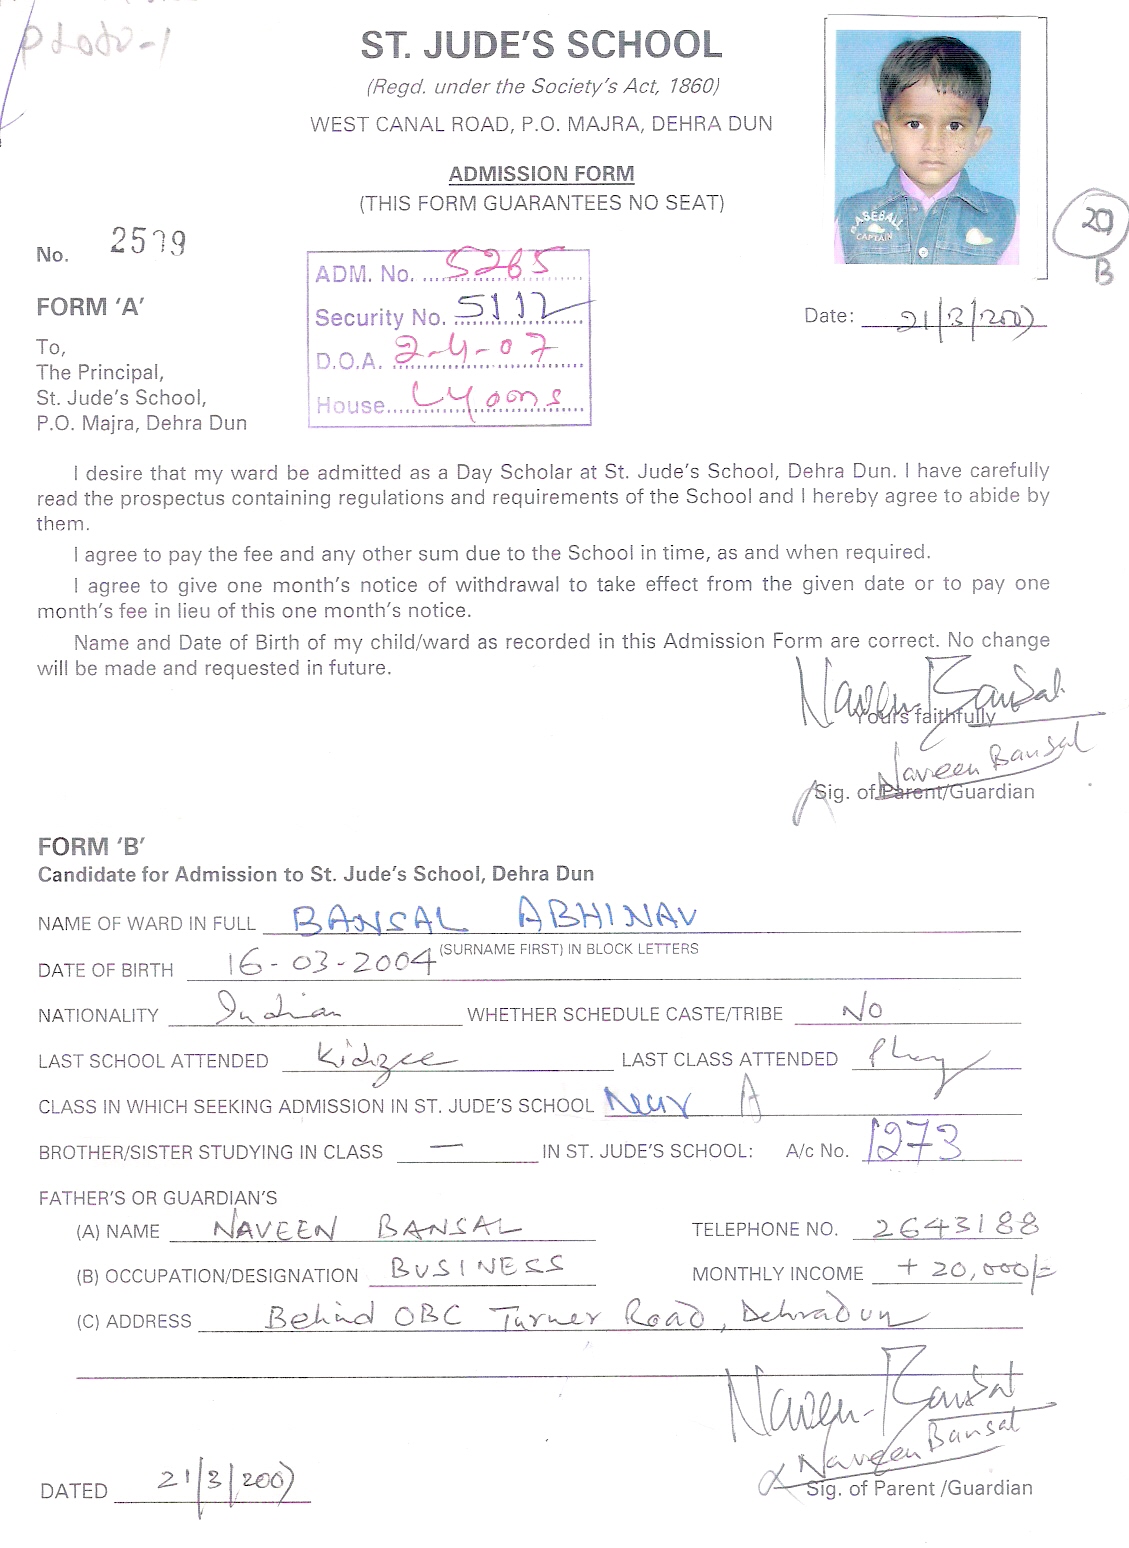 ST. JUDE'S SCHOOL
(Regd. under the Society's Act, 1860)
WEST CANAL ROAD, P.O. MAJRA, DEHRA DUN
ADMISSION FORM
(THIS FORM GUARANTEES NO SEAT)
BASEBALL
CAPTAIN
20
B
No. 2579
ADM. No. 5265
Security No. 5112
D.O.A. 2-4-07
House Lyoons
FORM 'A'
Date: 21/3/2007
To,
The Principal,
St. Jude's School,
P.O. Majra, Dehra Dun
I desire that my ward be admitted as a Day Scholar at St. Jude's School, Dehra Dun. I have carefully
read the prospectus containing regulations and requirements of the School and I hereby agree to abide by
them.
I agree to pay the fee and any other sum due to the School in time, as and when required.
I agree to give one month's notice of withdrawal to take effect from the given date or to pay one
month's fee in lieu of this one month's notice.
Name and Date of Birth of my child/ward as recorded in this Admission Form are correct. No change
will be made and requested in future.
Naveen Bansal
Yours faithfully
Naveen Bansal
Sig. of Parent/Guardian
FORM 'B'
Candidate for Admission to St. Jude's School, Dehra Dun
NAME OF WARD IN FULL BANSAL ABHINAV
(SURNAME FIRST) IN BLOCK LETTERS
DATE OF BIRTH 16-03-2004
NATIONALITY Indian WHETHER SCHEDULE CASTE/TRIBE No
LAST SCHOOL ATTENDED Kidzee LAST CLASS ATTENDED Play
CLASS IN WHICH SEEKING ADMISSION IN ST. JUDE'S SCHOOL Nur A
BROTHER/SISTER STUDYING IN CLASS — IN ST. JUDE'S SCHOOL: A/c No. 1273
FATHER'S OR GUARDIAN'S
(A) NAME NAVEEN BANSAL TELEPHONE NO. 2643188
(B) OCCUPATION/DESIGNATION BUSINESS MONTHLY INCOME + 20,000/=
(C) ADDRESS Behind OBC Turner Road, Dehradun
Naveen Bansal
Naveen Bansal
DATED 21/3/2007 Sig. of Parent /Guardian